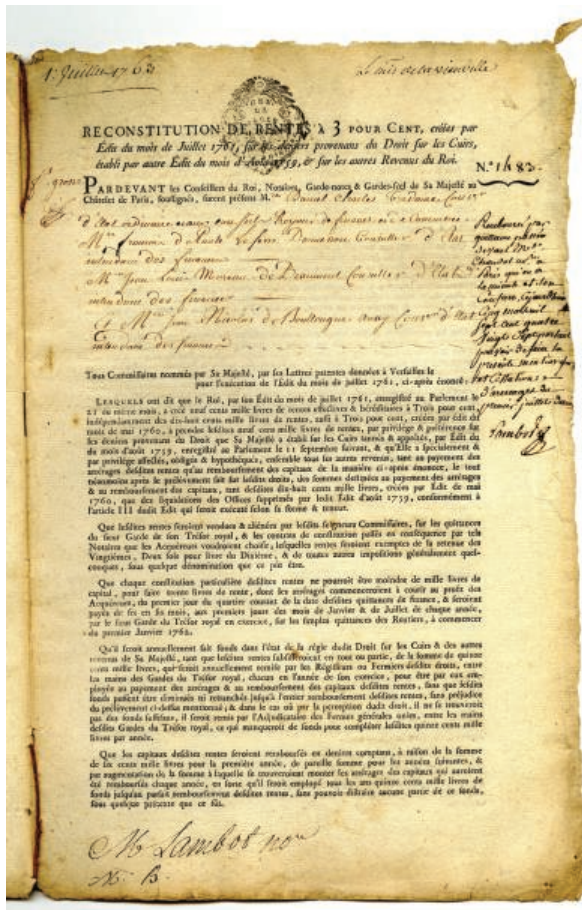 1.er Juillet 1763
RECONSTITUTION DE RENTES À 3 POUR CENT, créées par
Édit du mois de Juillet 1761, sur les deniers provenans du Droit sur les Cuirs,
établi par autre Édit du mois d'Août 1759, & sur les autres Revenus du Roi.
N.º 1483.
PARDEVANT les Conseillers du Roi, Notaires, Garde-notes & Gardes-scel de Sa Majesté au
Châtelet de Paris, soussignés, furent présens M.re Daniel Charles Trudaine Cons.er
d'Etat ordinaire
M.re
intendant des finances
M.re Jean Louis Moreau de Beaumont Conseiller d'Etat
intendant des finances
Et M.re Jean Nicolas de Boullongne
intendant des finances
Tous Commissaires nommés par Sa Majesté, par ses Lettres patentes données à Versailles le
pour l'exécution de l'Édit du mois de juillet 1761, ci-après énoncé:
LESQUELS ont dit que le Roi, par son Édit du mois de juillet 1761, enregistré au Parlement le
21 du même mois, a créé neuf cents mille livres de rentes effectives & héréditaires à Trois pour cent,
indépendamment des dix-huit cents mille livres de rentes, aussi à Trois pour cent, créées par édit du
mois de mai 1760, à prendre lesdites neuf cents mille livres de rentes, par privilége & préférence sur
les deniers provenans du Droit que Sa Majesté a établi sur les Cuirs tannés & apprêtés, par Édit du
du mois d'août 1759, enregistré au Parlement le 11 septembre suivant, & qu'Elle a spécialement &
par privilége affectés, obligés & hypothéqués, ensemble tous ses autres revenus, tant au payement des
arrérages desdites rentes qu'au remboursement des capitaux de la manière ci-après énoncée, le tout
néanmoins après le prélèvement fait sur lesdits droits, des sommes destinées au payement des arrérages
& au remboursement des capitaux, tant desdites dix-huit cents mille livres, créées par Édit de mai
1760, que des liquidations des Offices supprimés par ledit Édit d'août 1759, conformément à
l'article III dudit Édit qui seroit exécuté selon sa forme & teneur.
Que lesdites rentes seroient vendues & aliénées par lesdits seigneurs Commissaires, sur les quittances
du sieur Garde de son Trésor royal, & les contrats de constitution passés en conséquence par tels
Notaires que les Acquéreurs voudroient choisir, lesquelles rentes seroient exemptes de la retenue des
Vingtièmes, Deux sols pour livre du Dixième, & de toutes autres impositions généralement quel-
conques, sous quelque dénomination que ce pût être.
Que chaque constitution particulière desdites rentes ne pourroit être moindre de mille livres de
capital, pour faire trente livres de rente, dont les arrérages commenceroient à courir au profit des
Acquéreurs, du premier jour du quartier courant de la date desdites quittances de finance, & seroient
payés de six en six mois, aux premiers jours des mois de Janvier & de Juillet de chaque année,
par le sieur Garde du Trésor royal en exercice, sur les simples quittances des Rentiers, à commencer
du premier Janvier 1762.
Qu'il seroit annuellement fait fonds dans l'état de la régie dudit Droit sur les Cuirs & des autres
revenus de Sa Majesté, tant que lesdites rentes subsisteroient en tout ou partie, de la somme de quinze
cents mille livres, qui seroit annuellement remise par les Régisseurs ou Fermiers desdits droits, entre
les mains des Gardes du Trésor royal, chacun en l'année de son exercice, pour être par eux em-
ployée au payement des arrérages & au remboursement des capitaux desdites rentes, sans que lesdits
fonds pussent être diminués ni retranchés jusqu'à l'entier remboursement desdites rentes, sans préjudice
du prélèvement ci-dessus mentionné; & dans le cas où par la perception dudit droit, il ne se trouveroit
pas des fonds suffisans, il seroit remis par l'Adjudicataire des Fermes générales unies, entre les mains
desdits Gardes du Trésor royal, ce qui manqueroit de fonds pour compléter lesdites quinze cents mille
livres par année.
Que les capitaux desdites rentes seroient remboursés en deniers comptans, à raison de la somme
de six cents mille livres pour la première année, de pareille somme pour les années suivantes, &
par augmentation de la somme à laquelle se trouveroient monter les arrérages des capitaux qui auroient
été remboursés chaque année, en sorte qu'il seroit employé tous les ans quinze cents mille livres de
fonds jusqu'au parfait remboursement desdites rentes, sans pouvoir distraire aucune partie de ce fonds,
sous quelque prétexte que ce fût.
M.e Lambot no.re
N.º B.